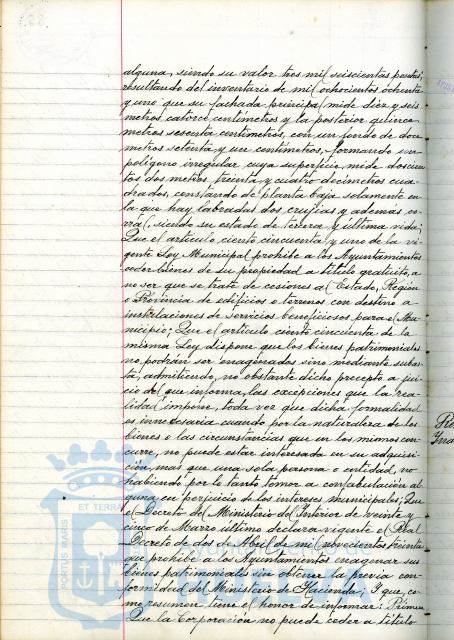 alguna, siendo su valor tres mil seiscientas pesetas;
resultando del inventario de mil ochocientos ochenta
y uno que su fachada principal mide diez y seis
metros catorce centímetros y la posterior quince
metros sesenta centímetros, con un fondo de doce
metros setenta y un centímetros, formando un
polígono irregular cuya superficie mide doscien
tos dos metros treinta y cuatro decímetros cua
drados, constando de planta baja solamente en
la que hay labradas dos crujias y ademas co-
rral, siendo su estado de tercera y última vida;
Que el artículo ciento cincuenta y uno de la vi-
gente Ley Municipal prohibe a los Ayuntamientos
ceder bienes de su propiedad a título gratuito, a
no ser que se trate de cesiones al Estado, Región
o Provincia de edificios o terrenos con destino a
instalaciones de Servicios beneficiosos para el Mu-
nicipio; Que el artículo ciento cincuenta de la
misma Ley dispone que los bienes patrimoniales
no podrán ser enagenados sino mediante subas-
ta, admitiendo, no obstante dicho precepto a jui-
cio del que informa, las excepciones que la rea-
lidad impone, toda vez que dicha formalidad
es innecesaria cuando por la naturaleza de los
bienes o las circunstancias que en los mismos con-
curre, no puede estar interesada en su adquisi-
ción, mas que una sola persona o entidad, no
habiendo por lo tanto temor a confabulación al
guna en perjuicio de los intereses municipales; Que
el Decreto del Ministerio del Interior de veinte y
cinco de Marzo último declara vigente el Real
Decreto de dos de Abril de mil novecientos treinta
que prohibe a los Ayuntamientos enagenar sus
bienes patrimoniales sin obtener la previa con-
formidad del Ministerio de Hacienda; Y que, co-
mo resumen tiene el honor de informar: Primero
Que la Corporación no puede ceder a título
ET TERRA
PORTUS MARIS
Ayuntamiento de